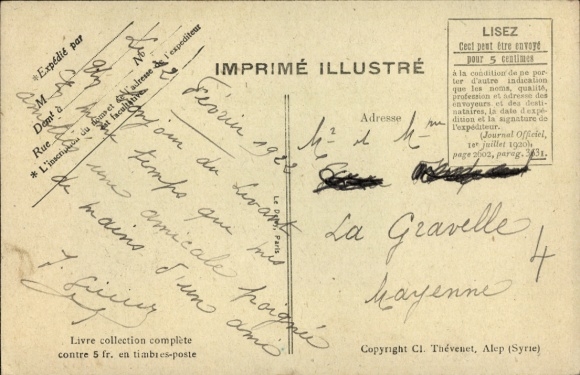 IMPRIMÉ ILLUSTRÉ
*Expédié par
M
Demt à
Rue
N°
* L'inscription du nom et de l'adresse de l'expéditeur
est facultative.
Le 2 Février 1922
du Levant
temps que mes
une amicale poignée
de mains d'un ami
Le Deley, Paris
Livre collection complète
contre 5 fr. en timbres-poste
LISEZ
Ceci peut être envoyé
pour 5 centimes
à la condition de ne por-
ter d'autre indication
que les noms, qualité,
profession et adresse des
envoyeurs et des desti-
nataires, la date d'expé-
dition et la signature de
l'expéditeur.
(Journal Officiel,
1er juillet 1920)
page 2602, parag. 3631.
Adresse
Mr et Mme
La Gravelle
Mayenne
4
Copyright Cl. Thévenet, Alep (Syrie)